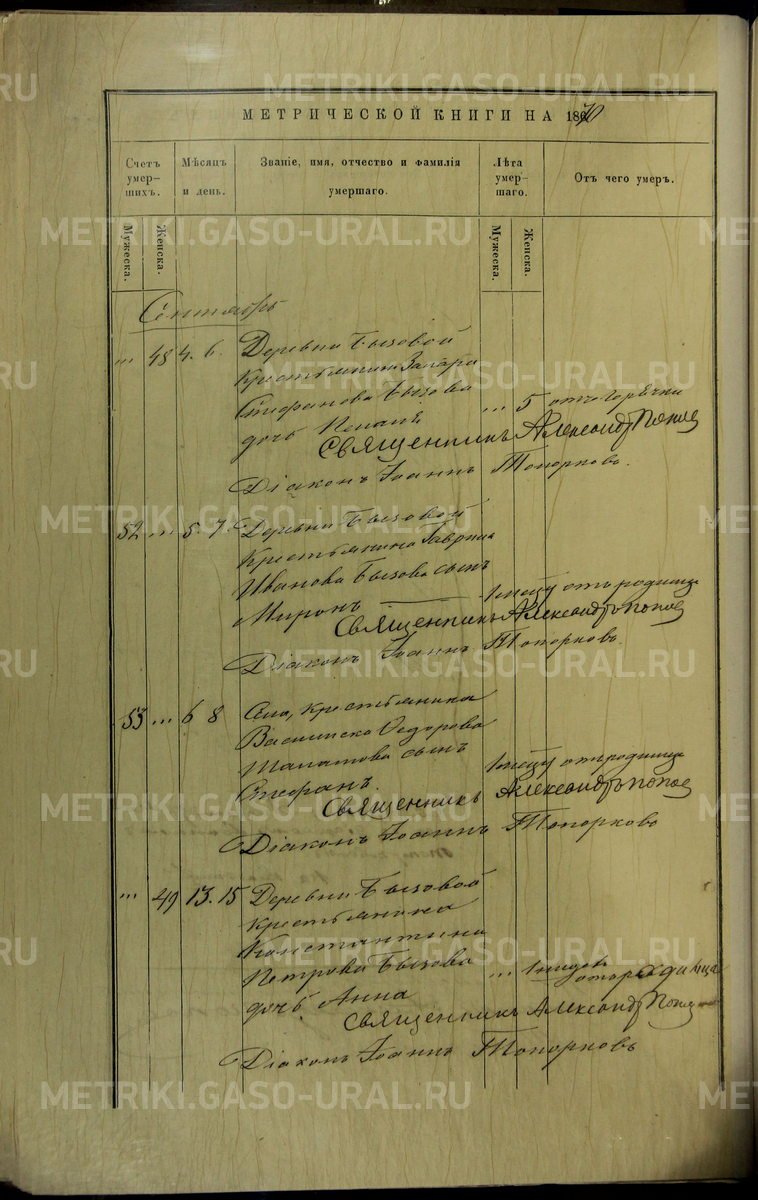 МЕТРИЧЕСКОЙ КНИГИ НА 1870
Счетъ умер-шихъ.
Мѣсяцъ и день.
Званіе, имя, отчество и фамилія умершаго.
Лѣта умер-шаго.
Отъ чего умеръ.
Мужеска.
Женска.
Мужеска.
Женска.
Сентябрь
" 48 4. 6. Деревни Бызовой
крестьянина Захара
Стефанова Бызова
дочь " 5 отъ горячки
Священникъ Александръ Попов
Діаконъ Іоаннъ Топорковъ.
52 " 5. 7. Деревни Бызовой
Крестьянина Гаврила
Иванова Бызова сынъ
Миронъ отъ родимца
Священникъ Александръ Попов
Діаконъ Іоаннъ Топорковъ.
53 " 6 8 Села, крестьянина
Василиска Ѳедорова
сынъ
Стефанъ. отъ родимца
Священникъ Александръ Попов
Діаконъ Іоаннъ Топорковъ
" 49 13. 15 Деревни Бызовой
крестьянина
Константина
Петрова Бызова
дочь Анна " отъ родимца
Священникъ Александръ Попов
Діаконъ Іоаннъ Топорковъ
METRIKI.GASO-URAL.RU